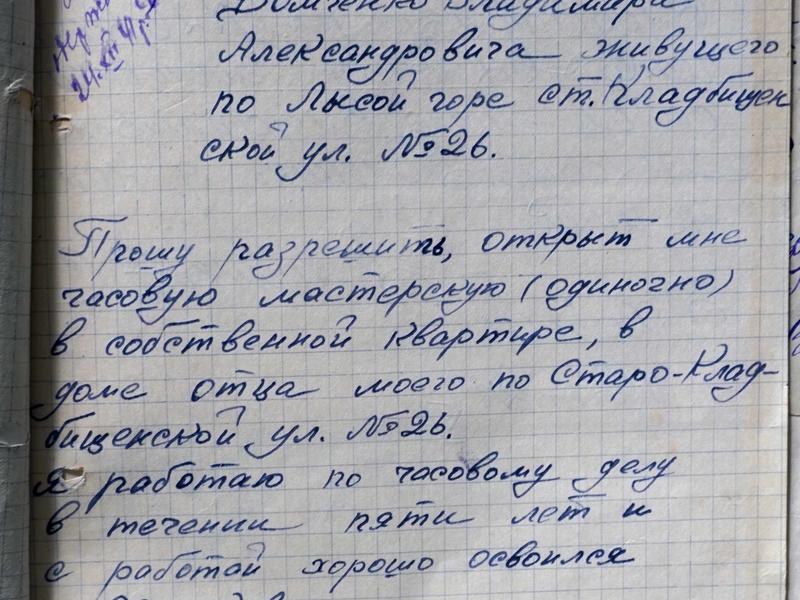 24.XII 41
Домченко Владимира
Александровича живущего
по Лысой горе ст. Кладбищен
ской ул. №26.
Прошу разрешить, открыт мне
часовую мастерскую (одиночно)
в собственной квартире, в
доме отца моего по Старо-Клад-
бищенской ул. №26.
Я работаю по часовому делу
в течении пяти лет и
с работой хорошо освоился